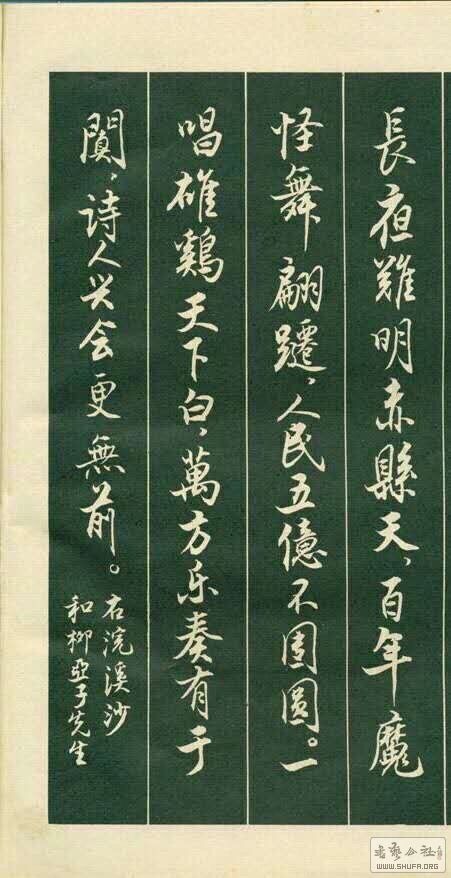 長夜難明赤縣天，百年魔
怪舞翩躚，人民五億不團圓。一
唱雄鷄天下白，萬方乐奏有于
闐，诗人兴会更無前。
右浣溪沙
和柳亞子先生
书艺公社
WWW.SHUFA.ORG